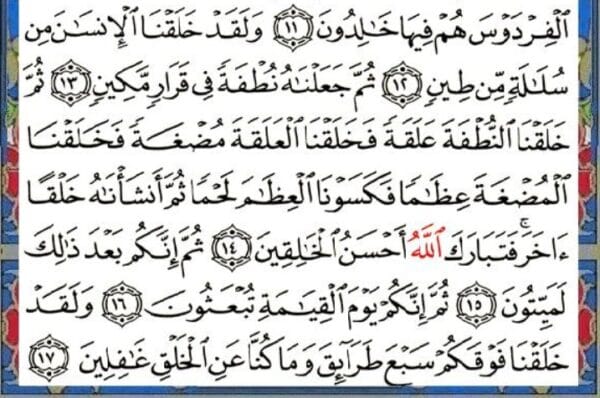 ٱلۡفِرۡدَوۡسَ هُمۡ فِيهَا خَٰلِدُونَ ١١ وَلَقَدۡ خَلَقۡنَا ٱلۡإِنسَٰنَ مِن
سُلَٰلَةٖ مِّن طِينٖ ١٢ ثُمَّ جَعَلۡنَٰهُ نُطۡفَةٗ فِي قَرَارٖ مَّكِينٖ ١٣ ثُمَّ
خَلَقۡنَا ٱلنُّطۡفَةَ عَلَقَةٗ فَخَلَقۡنَا ٱلۡعَلَقَةَ مُضۡغَةٗ فَخَلَقۡنَا
ٱلۡمُضۡغَةَ عِظَٰمٗا فَكَسَوۡنَا ٱلۡعِظَٰمَ لَحۡمٗا ثُمَّ أَنشَأۡنَٰهُ خَلۡقًا
ءَاخَرَۚ فَتَبَارَكَ ٱللَّهُ أَحۡسَنُ ٱلۡخَٰلِقِينَ ١٤ ثُمَّ إِنَّكُم بَعۡدَ ذَٰلِكَ
لَمَيِّتُونَ ١٥ ثُمَّ إِنَّكُمۡ يَوۡمَ ٱلۡقِيَٰمَةِ تُبۡعَثُونَ ١٦ وَلَقَدۡ
خَلَقۡنَا فَوۡقَكُمۡ سَبۡعَ طَرَآئِقَ وَمَا كُنَّا عَنِ ٱلۡخَلۡقِ غَٰفِلِينَ ١٧